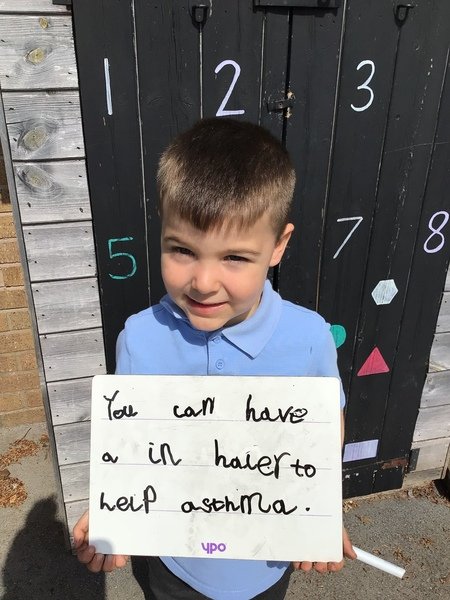 1 2 3
5 7 8
You can have
a in haler to
help asthma.
ypo